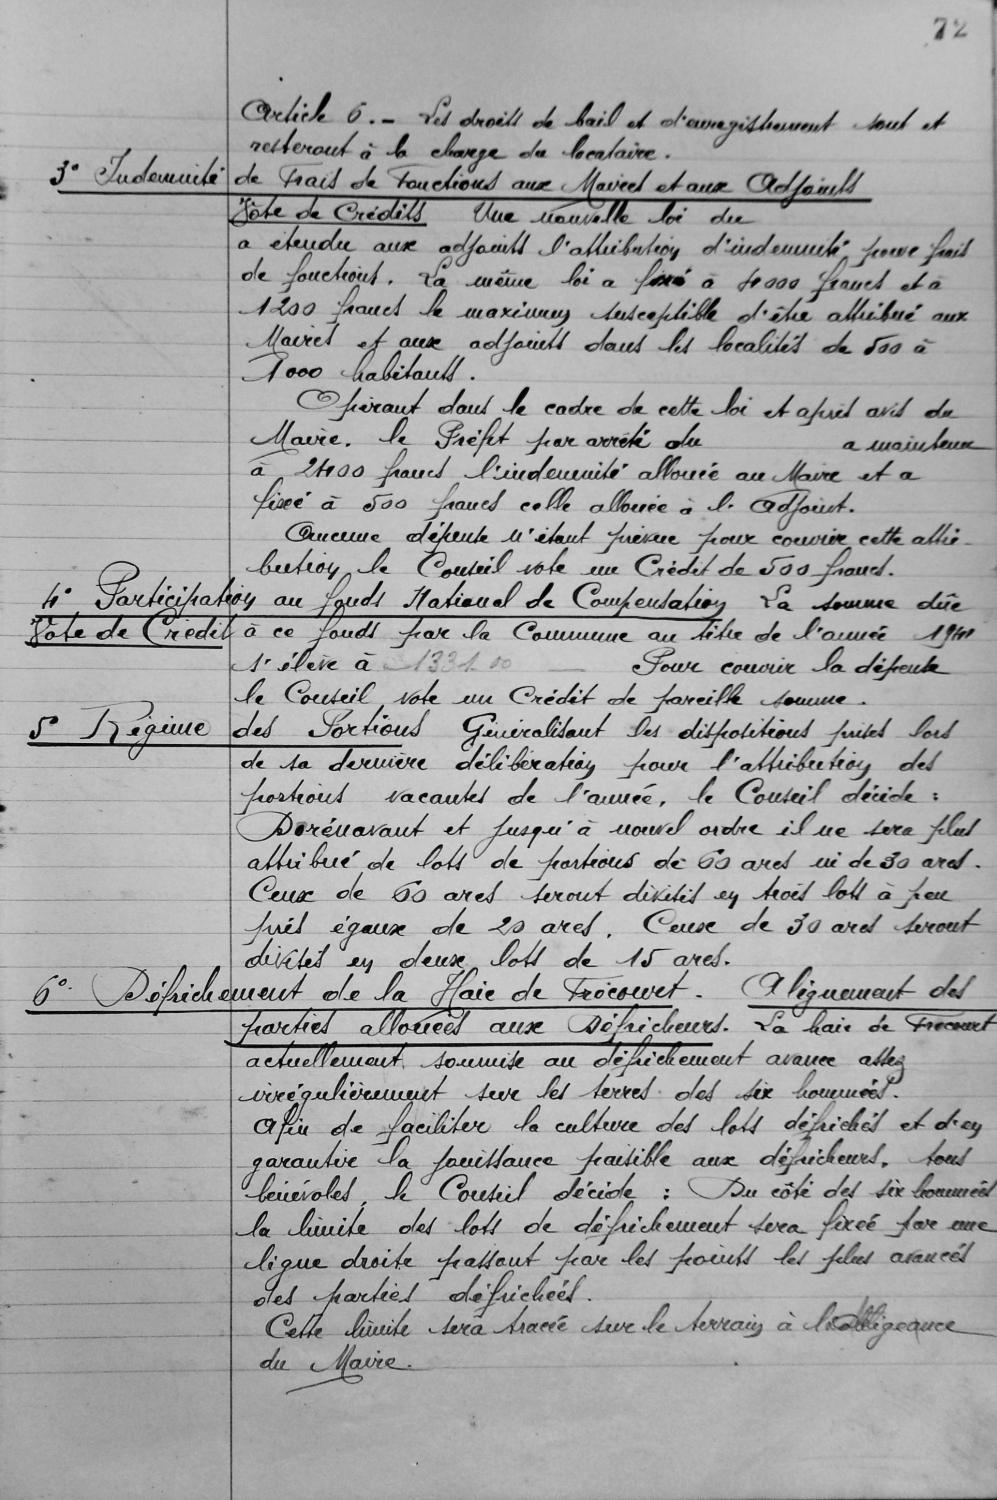 72
Article 6. - Les droits de bail et d'enregistrement sont et
resteront à la charge du locataire.
3° Indemnité de Frais de Fonctions aux Maires et aux Adjoints
Vote de Crédits Une nouvelle loi du
a étendu aux adjoints l'attribution d'indemnité pour frais
de fonctions. La même loi a fixé à 4000 francs et à
1200 francs le maximum susceptible d'être attribué aux
Maires et aux adjoints dans les localités de 500 à
1000 habitants.
Opérant dans le cadre de cette loi et après avis du
Maire, le Préfet par arrêté du a maintenu
à 2400 francs l'indemnité allouée au Maire et a
fixé à 500 francs celle allouée à l'Adjoint.
Aucune dépense n'étant prévue pour couvrir cette attri-
bution, le Conseil vote un Crédit de 500 francs.
4° Participation au fonds National de Compensation La somme dûe
Vote de Crédit à ce fonds par la Commune au titre de l'année
s'élève à 1331 00 — Pour couvrir la dépense
le Conseil vote un Crédit de pareille somme.
5 Régime des Portions Généralisant les dispositions prises lors
de sa dernière délibération pour l'attribution des
portions vacantes de l'année, le Conseil décide :
Dorénavant et jusqu'à nouvel ordre il ne sera plus
attribué de lots de portions de 60 ares ni de 30 ares.
Ceux de 60 ares seront divisés en trois lots à peu
près égaux de 20 ares. Ceux de 30 ares seront
divisés en deux lots de 15 ares.
6° Défrichement de la Haie de Frocourt. Alignement des
parties allouées aux Défricheurs. La haie de Frocourt
actuellement soumise au défrichement avance assez
irrégulièrement sur les terres des six hommées.
Afin de faciliter la culture des lots défrichés et d'en
garantir la jouissance paisible aux défricheurs, tous
bénévoles, le Conseil décide : Du côté des six hommées
la limite des lots de défrichement sera fixée par une
ligne droite passant par les points les plus avancés
des parties défrichées.
Cette limite sera tracée sur le terrain à la
du Maire.